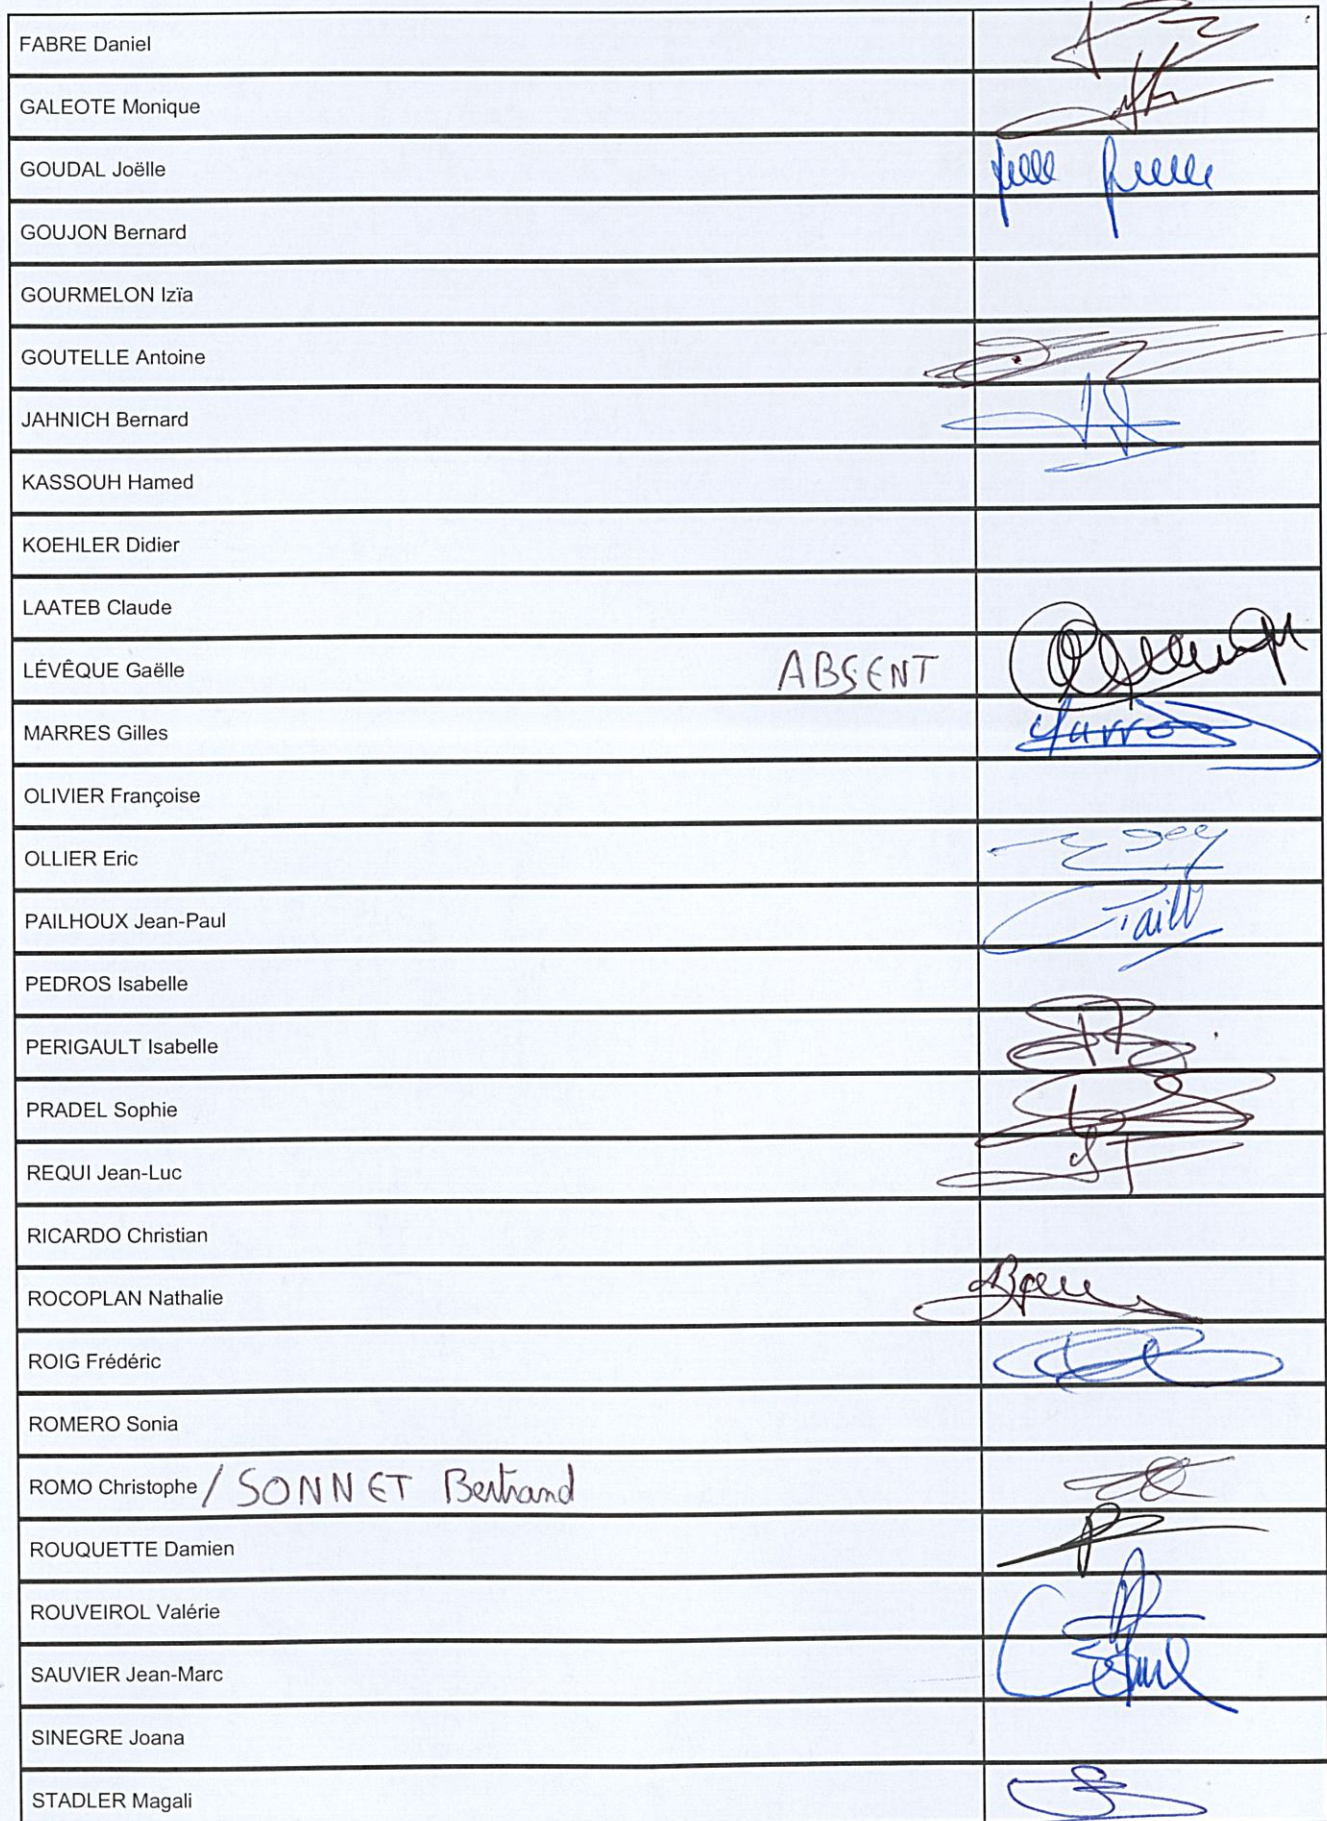 FABRE Daniel
GALEOTE Monique
GOUDAL Joëlle
GOUJON Bernard
GOURMELON Izïa
GOUTELLE Antoine
JAHNICH Bernard
KASSOUH Hamed
KOEHLER Didier
LAATEB Claude
LÉVÊQUE Gaëlle ABSENT
MARRES Gilles
OLIVIER Françoise
OLLIER Eric
PAILHOUX Jean-Paul
PEDROS Isabelle
PERIGAULT Isabelle
PRADEL Sophie
REQUI Jean-Luc
RICARDO Christian
ROCOPLAN Nathalie
ROIG Frédéric
ROMERO Sonia
ROMO Christophe / SONNET Bertrand
ROUQUETTE Damien
ROUVEIROL Valérie
SAUVIER Jean-Marc
SINEGRE Joana
STADLER Magali